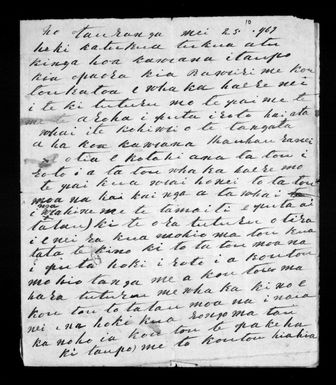 no tauranga mei 25 10 967
hoki katukua tukua atu
kinga hoa kawana itaupo
kia opaora kia Rawiri me kou
tou katoa e whaka haere nei
i te ki tuturu mo te pai me te
me te aroha i puta i roto hai ata
whai i te kohiwi o te tangata
a ha koa kawana
otia e kotahi ana ta tou i
roto i a ta tou whaka haere me
te pai kua waiho nei to ta tou
moana hai kainga a ta wha
i wahine me te tamaiti e puta ai
tatau ki te ora tuturu otira
i e nei ra kua mohio ma tou kua
tata te kino ki to ta tou moana
i puta hoki i roto i a koutou
mohio tanga me a kou tou ma
hara tuturu me whaka kino e
kou tou to ta tou moana i naia
nei ina hoki kua rongo ma tou
ka noho ia kou tou te pakeha
ki taupo me to koutou hiahia